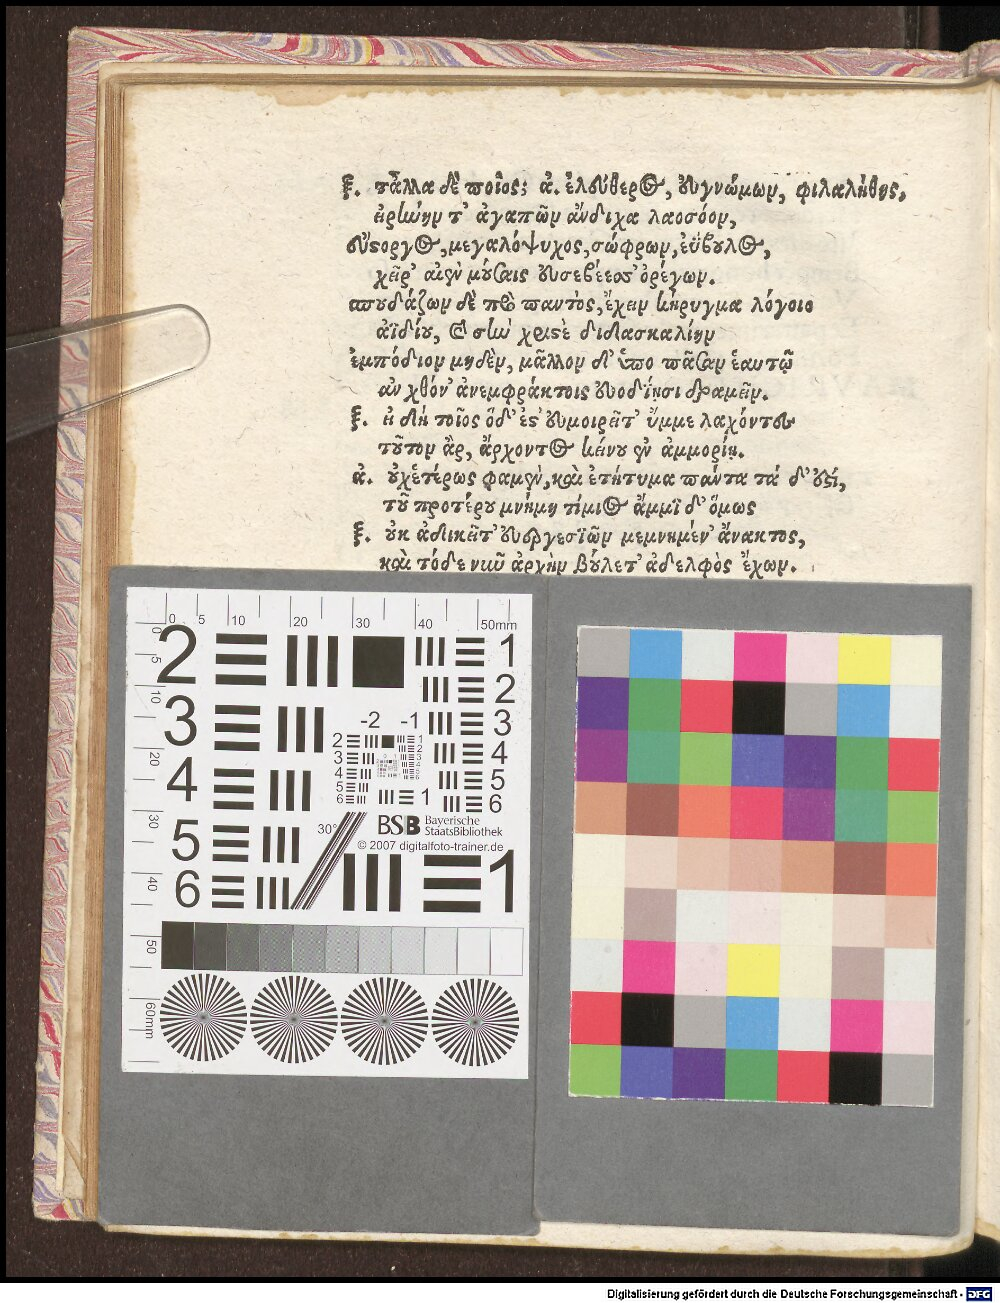 ξ. τἆλλα δὲ ποῖος; ἀ. ἐλεύθερος, εὐγνώμων, φιλαλήθης,
εἰρήνην τ' ἀγαπῶν ἄνδιχα λαοσόον,
εὔστοργος, μεγαλόψυχος, σώφρων, ἐΰβουλος,
χεῖρ' αἰὲν μούσαις εὐσεβέεσσ' ὀρέγων.
σπουδάζων δὲ πρὸ παντὸς, ἔχειν κήρυγμα λόγοιο
ἀϊδίου, καὶ σὴν χριστὲ διδασκαλίην
ἐμπόδιον μηδὲν, μᾶλλον δ' ὑπο πᾶσαν ἑαυτῷ
ἀν χθόν' ἀνεμφράκτοις εὐοδίῃσι δραμεῖν.
ξ. ἦ δὴ ποῖος ὅδ' ἐστ' εὐμοιρεῖτ' ὔμμε λαχόντας
τοῦτον ἂρ, ἄρχοντος κείνου ἐν ἀμμορίῃ.
ἀ. οὐχ ἑτέρως φαμὲν, καὶ ἐτήτυμα πάντα τά δ' ἐστί,
τοῦ προτέρου μνήμη τίμιος ἄμμϊ δ' ὅμως
ξ. οὐκ ἀδικεῖτ' εὐεργεσϊῶν μεμνημέν' ἄνακτος,
καὶ τόδε νῦν ἀρχὴν βούλετ' ἀδελφὸς ἔχων.
0 5 10 20 30 40 50mm
0 5 10 20 30 40 50 60mm
2 1
2
3 -2 -1 3
4 4
5
6 1 6
30°
BSB Bayerische
StaatsBibliothek
© 2007 digitalfoto-trainer.de
5
6 1
Digitalisierung gefördert durch die Deutsche Forschungsgemeinschaft - DFG